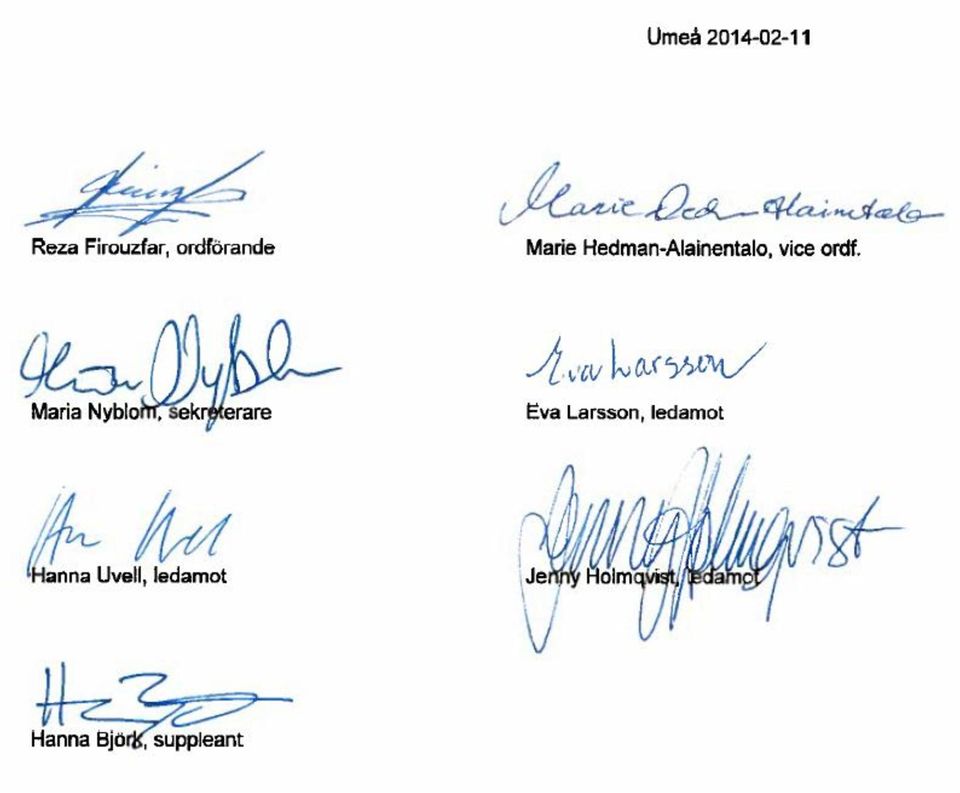 Umeå 2014-02-11
Marie Hedman Alainentalo
Reza Firouzfar, ordförande
Marie Hedman-Alainentalo, vice ordf.
Maria Nyblom
Eva Larsson
Maria Nyblom, sekreterare
Eva Larsson, ledamot
Jenny Holmqvist
Hanna Uvell, ledamot
Jenny Holmqvist, ledamot
Hanna Björk, suppleant